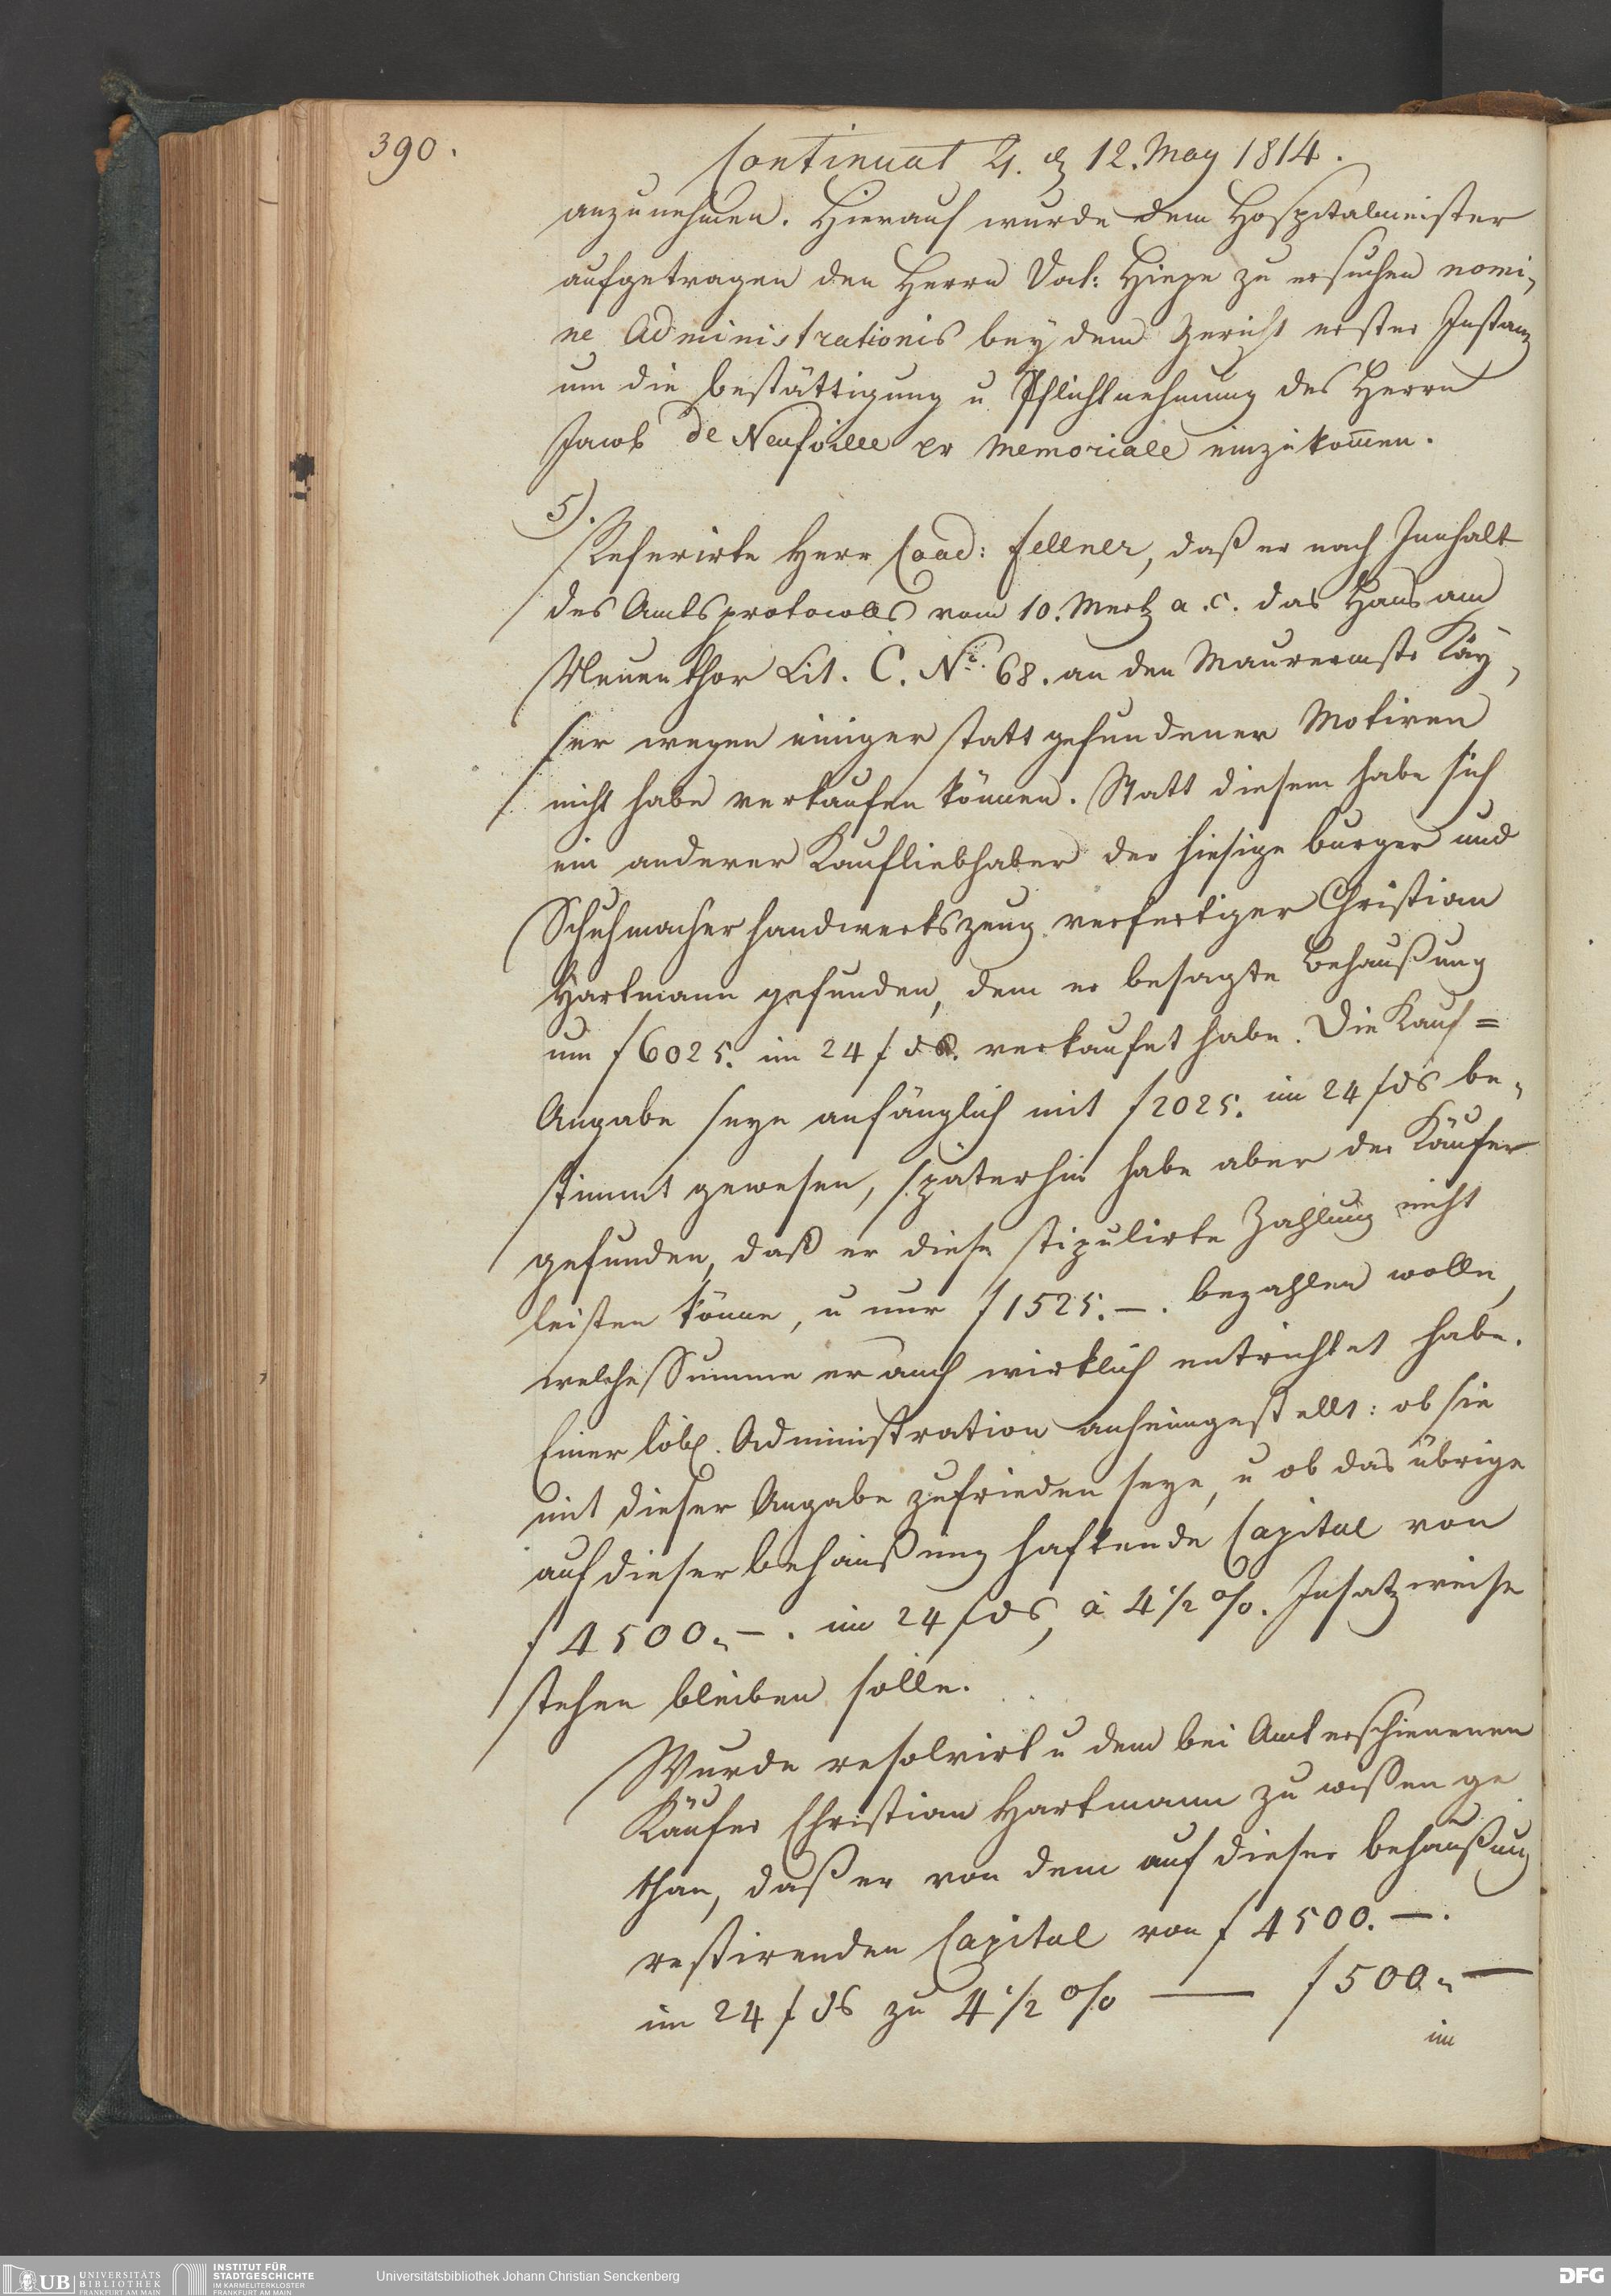 390.
Continuat 4. d 12. May 1814.
anzunehmen. Hierauf wurde dem Hospitalmeister
aufgetragen den Herrn Dat: Hiepe zu ersuchen nomi,
ne Administrationis bey dem Gericht erster Instanz
um die bestättigung u Pflichtnehmung des Herrn
Jacob de Neufville pr Memoriale einzukom̄en.
5).
Referirte Herr Coad: Fellner, daß er nach Innhalt
des Amtsprotocolls vom 10. Mertz a.c. das Haus am
Neuenthor Lit. C. No. 68. an den Maurermstr Käy,
ser wegen einiger statt gefundener Motiven
nicht habe verkaufen können. Statt diesem habe sich
ein anderer Kaufliebhaber der hiesige burger und
Schuhmacherhandwerkszeug verfertiger Christian
Hartmann gefunden, dem er besagte Behaußung
um f 6025. im 24 f ds. verkaufet habe. Die Kauf=
Angabe seye anfänglich mit f 2025. im 24 f ds be,
stimmt gewesen, späterhin habe aber der Käufer
gefunden, daß er diese stipulirte Zahlung nicht
leisten könne, u nur f 1525.–. bezahlen wolle,
welche Summe er auch wirklich entrichtet habe.
Einer löbl. Administration anheimgestellt: ob sie
mit dieser Angabe zufrieden seye, u ob das übrige
auf dieser behaußung haftende Capital von
f 4500.–. im 24 f ds, à 4 1/2 %. Insatzweise
stehen bleiben solle.
Wurde resolvirt u dem bei Amt erschienenen
Käufer Christian Hartmann zu wißen ge
than, daß er von dem auf dieser behaußung
restirenden Capital von f 4500.–.
im 24 f ds zu 4 1/2 % — f 500.–
im
UB UNIVERSITÄTS
BIBLIOTHEK
FRANKFURT AM MAIN
INSTITUT FÜR
STADTGESCHICHTE
IM KARMELITERKLOSTER
FRANKFURT AM MAIN
Universitätsbibliothek Johann Christian Senckenberg
DFG